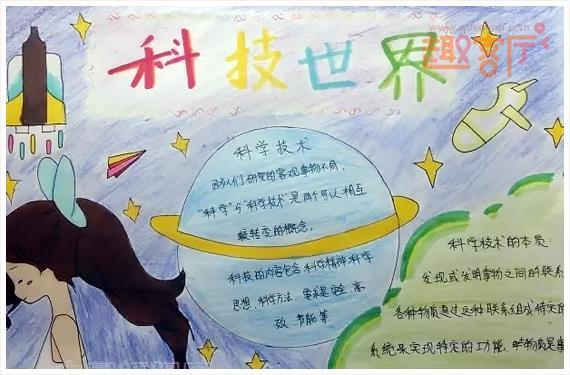 科技世界
趣客厅
科学技术
因人们研究的客观事物不同，
"科学"与"科学技术"是两个可以相互
转变的概念，
科技的内容包含科学精神科学
思想、科学方法、要求是安全、高
效、节能等
科学技术的本质:
发现或发明事物之间的联系
各种物质通过这种联系组成特定的
系统来实现特定的功能，